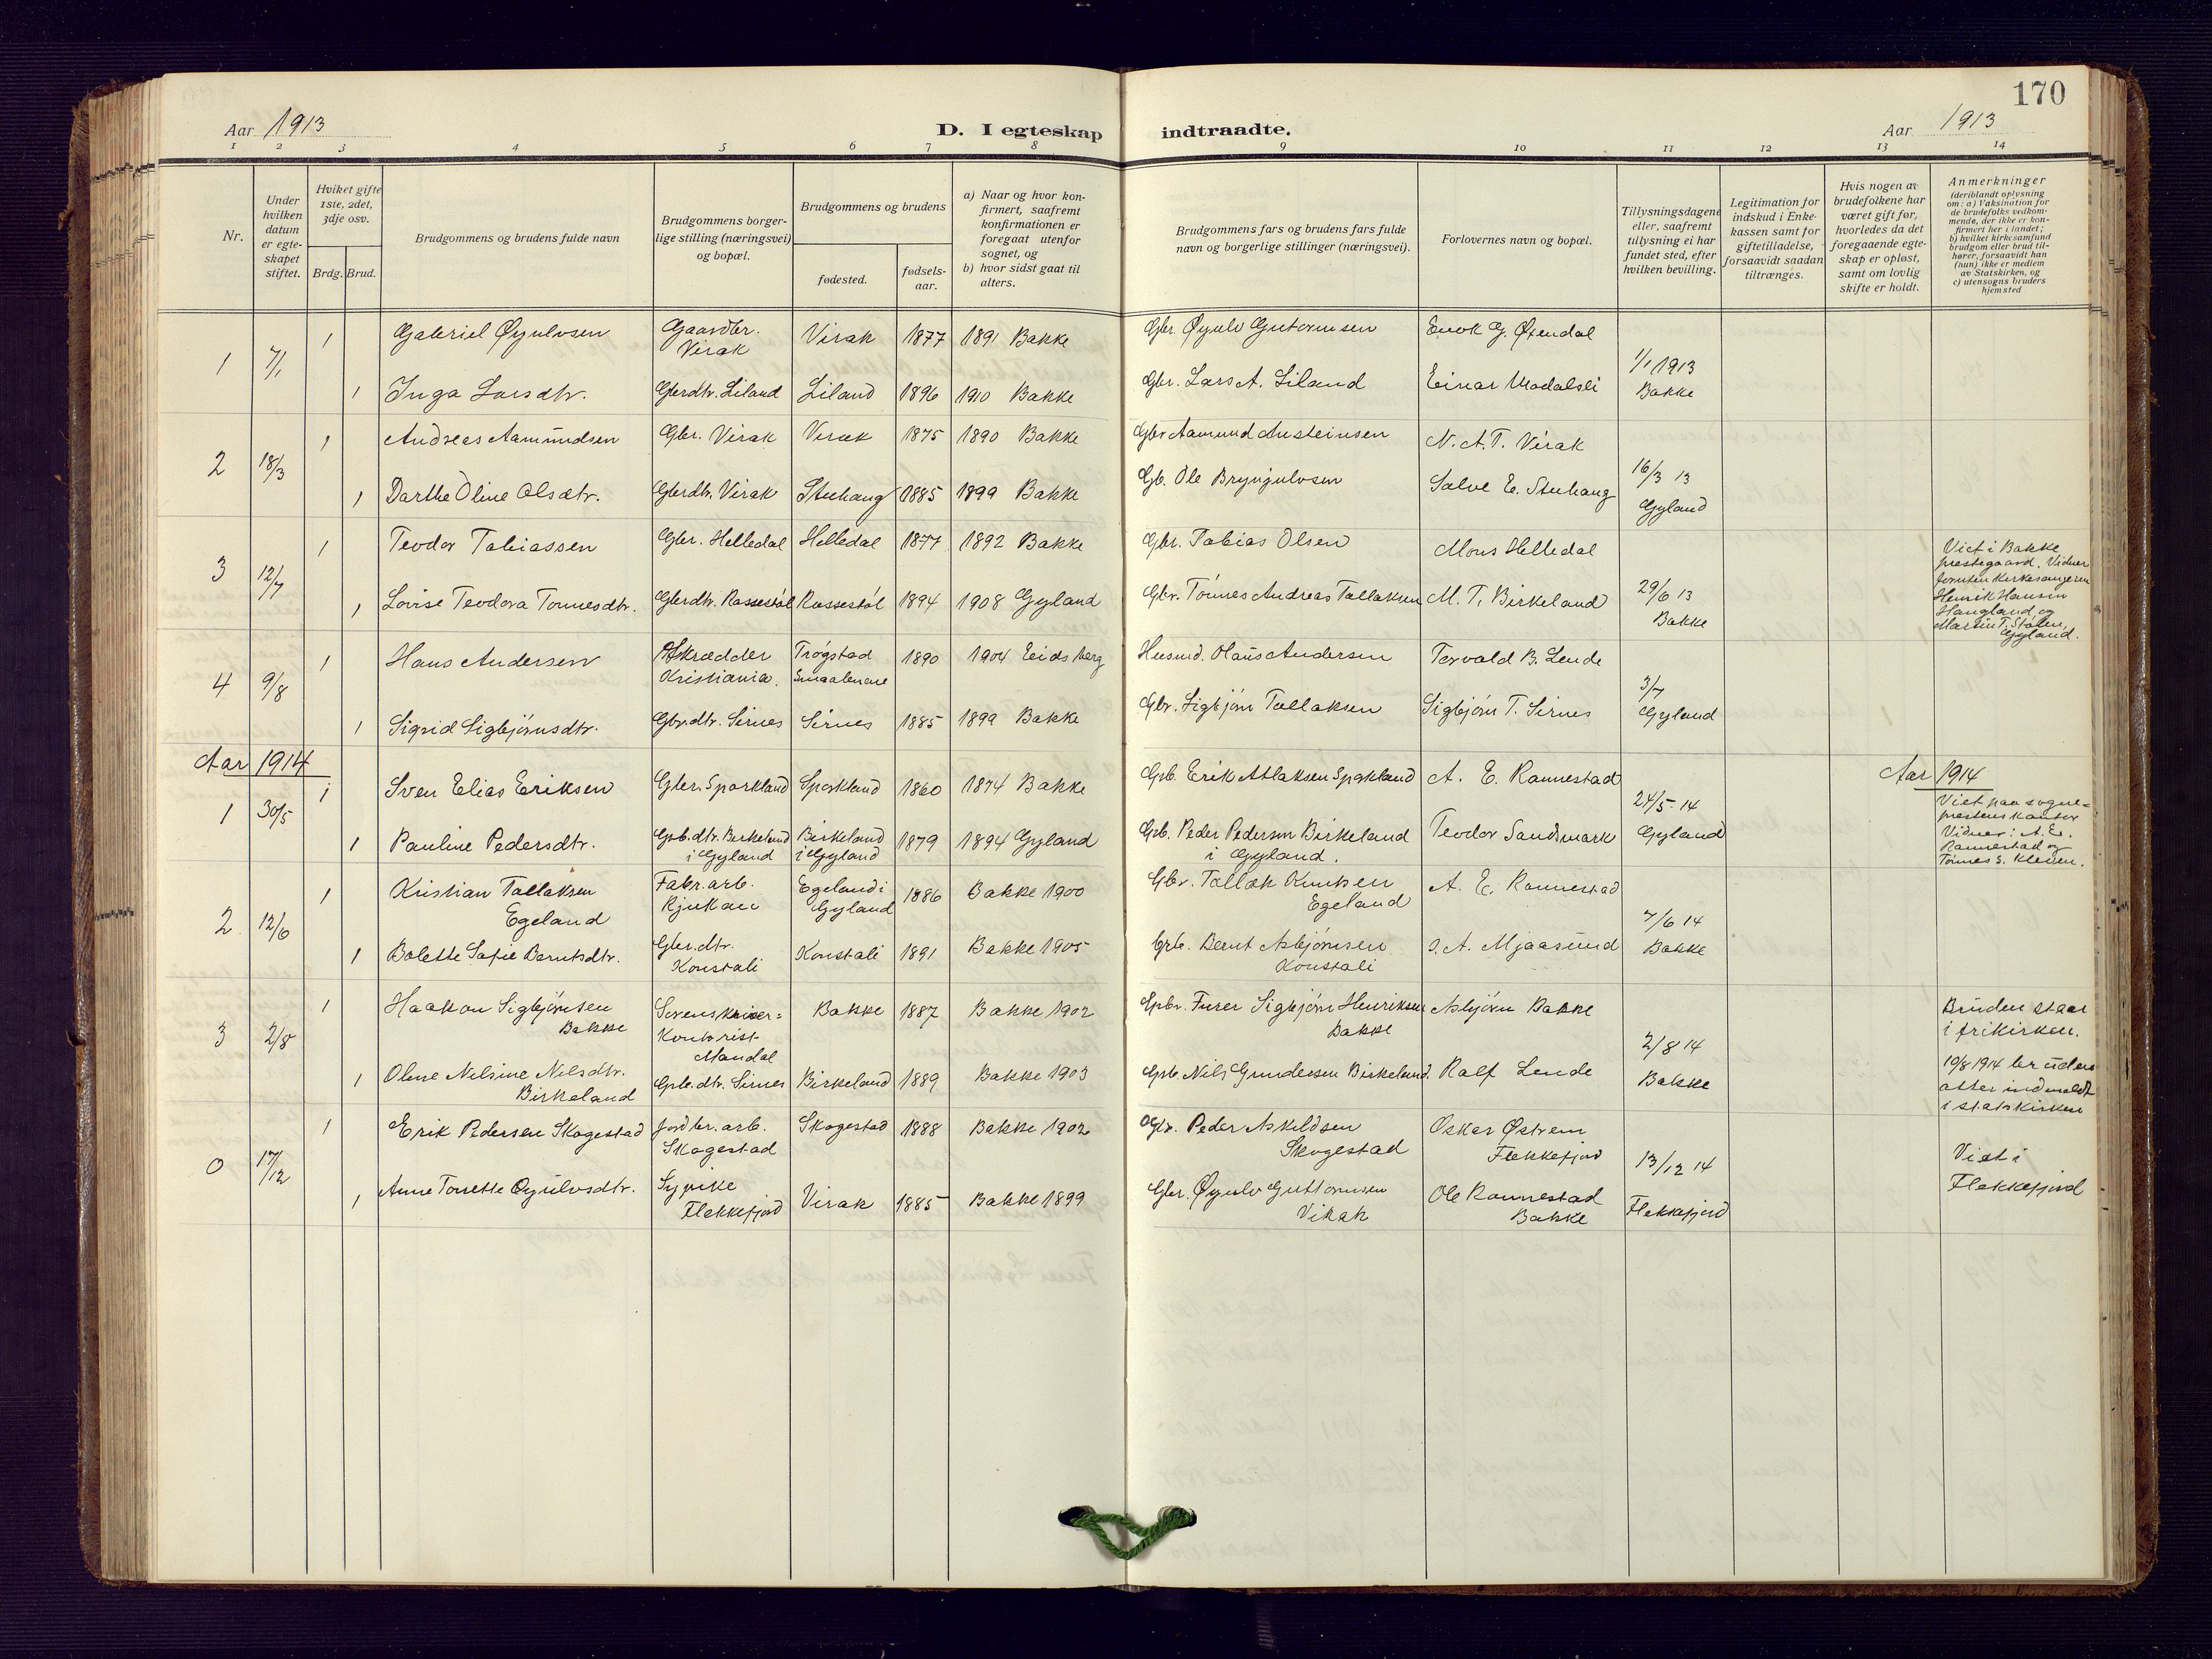 170
Aar 1913
D. I egteskap indtraadte.
Aar 1913
1 2 3 4 5 6 7 8 9 10 11 12 13 14
Nr.
Under
hvilken
datum
er egte-
skapet
stiftet.
Hvilket gifte
1ste, 2det,
3dje osv.
Brdg. Brud.
Brudgommens og brudens fulde navn
Brudgommens borger-
lige stilling (næringsvei)
og bopæl.
Brudgommens og brudens
fødested.
fødsels-
aar.
a) Naar og hvor kon-
firmert, saafremt
konfirmationen er
foregaat utenfor
sognet, og
b) hvor sidst gaat til
alters.
Brudgommens fars og brudens fars fulde
navn og borgerlige stillinger (næringsvei).
Forlovernes navn og bopæl.
Tillysningsdagene
eller, saafremt
tillysning ei har
fundet sted, efter
hvilken bevilling.
Legitimation for
indskud i Enke-
kassen samt for
giftetilladelse,
forsaavidt saadan
tiltrænges.
Hvis nogen av
brudefolkene har
været gift før,
hvorledes da det
foregaaende egte-
skap er opløst,
samt om lovlig
skifte er holdt.
Anmerkninger
(deriblandt oplysning
om: a) Vaksination for
de brudefolks vedkom-
mende, der ikke er kon-
firmert her i landet;
b) hvilket kirkesamfund
brudgom eller brud til-
hører, forsaavidt han
(hun) ikke er medlem
av Statskirken, og
c) utensogns bruders
hjemsted
1 7/1
1 Gabriel Øyulvsen
Gaardbr.
Virak
Virak 1877 1891 Bakke
Gbr. Øyulv Gutormsen
Enok G. Øxendal
1/1 1913
Bakke
1 Inga Larsdtr.
Gbrdtr. Liland Liland 1896 1910 Bakke
Gbr. Lars A. Liland
Einar Modalsli
2 18/3
1 Andreas Aamundsen
Gbr. Virak Virak 1875 1890 Bakke
Gbr Aamund Austeinsen
N. A. T. Virak
16/3 13
Gyland
1 Darthe Oline Olsdtr.
Gbrdtr. Virak Stuhaug 1885 1899 Bakke
Gb. Ole Bryngulvsen
Salve E. Stuhaug
3 12/7
1 Teodor Tobiassen
Gbr. Helledal Helledal 1877 1892 Bakke
Gbr. Tobias Olsen
Mons Helledal
29/6 13
Bakke
1 Lovise Teodora Tonnesdtr.
Gbrdtr. Rossestöl Rossestöl 1894 1908 Gyland
Gbr. Tönnes Andreas Tallaksen
M. T. Birkeland
Viet i Bakke
prestegaard. Vidner
foruten kirkesangeren
Henrik Hansen
Haugland, og
Martin T. Stölen,
Gyland.
4 9/8
1 Hans Andersen
Skrædder
Kristiania.
Trögstad
Smaalenene
1890 1904 Eidsberg
Husmd. Olaus Andersen
Torvald B. Lende
3/7
Gyland
1 Sigrid Sigbjörnsdtr.
Gbr.dtr. Sirnes Sirnes 1885 1899 Bakke
Gbr. Sigbjörn Tallaksen
Sigbjörn T. Sirnes
Aar 1914
Aar 1914
1 30/5
1 Sven Elias Eriksen
Gbr. Sparkland Sparkland 1860 1874 Bakke
Grb. Erik Atlaksen Sparkland
A. E. Rannestad
24/5 14
Gyland
1 Pauline Pedersdtr.
Grb.dtr. Birkeland
i Gyland
Birkeland
i Gyland
1879 1894 Gyland
Grb. Peder Pedersen Birkeland
i Gyland.
Teodor Sandsmark
Viet paa sogne-
prestens kontor
Vidner: A. E.
Rannestad og
Tönnes S. Kleven.
2 12/6
1 Kristian Tallaksen
Egeland
Fabr. arb.
Rjukan
Egeland i
Gyland
1886 Bakke 1900
Gbr. Tallak Knutsen
Egeland
A. E. Rannestad
7/6 14
Bakke
1 Bolette Sofie Berntsdtr.
Gbr.dtr.
Konstali
Konstali 1891 Bakke 1905
Grb. Bernt Asbjörnsen
Konstali
S. A. Mjaasund
3 2/8
1 Haakon Sigbjörnsen
Bakke
Sorenskriver-
Kontorist
Mandal
Bakke 1887 Bakke 1902
Grbr. Furer Sigbjörn Henriksen
Bakke
Asbjörn Bakke
2/8 14
Bakke
Bruden staar
i frikirken.
19/8 1914 bruden
atter indmeldt
i statskirken
1 Oline Nilsine Nilsdtr.
Birkeland
Grb.dtr. Sirnes Birkeland 1889 Bakke 1903
Grb. Nils Gundersen Birkeland.
Ralf Lende
0 17/12
1 Erik Pedersen Skogestad
Jordbr. arb.
Skogestad
Skogestad 1888 Bakke 1902
Gbr. Peder Askildsen
Skogestad
Oskar Østrem
Flekkefjord
13/12 14
Flekkefjord
Viet i
Flekkefjord
1 Anne Tonette Øyulvsdtr.
Sypike
Flekkefjord
Virak 1885 Bakke 1899
Gbr. Øyulv Guttormsen
Virak
Ole Rannestad
Bakke